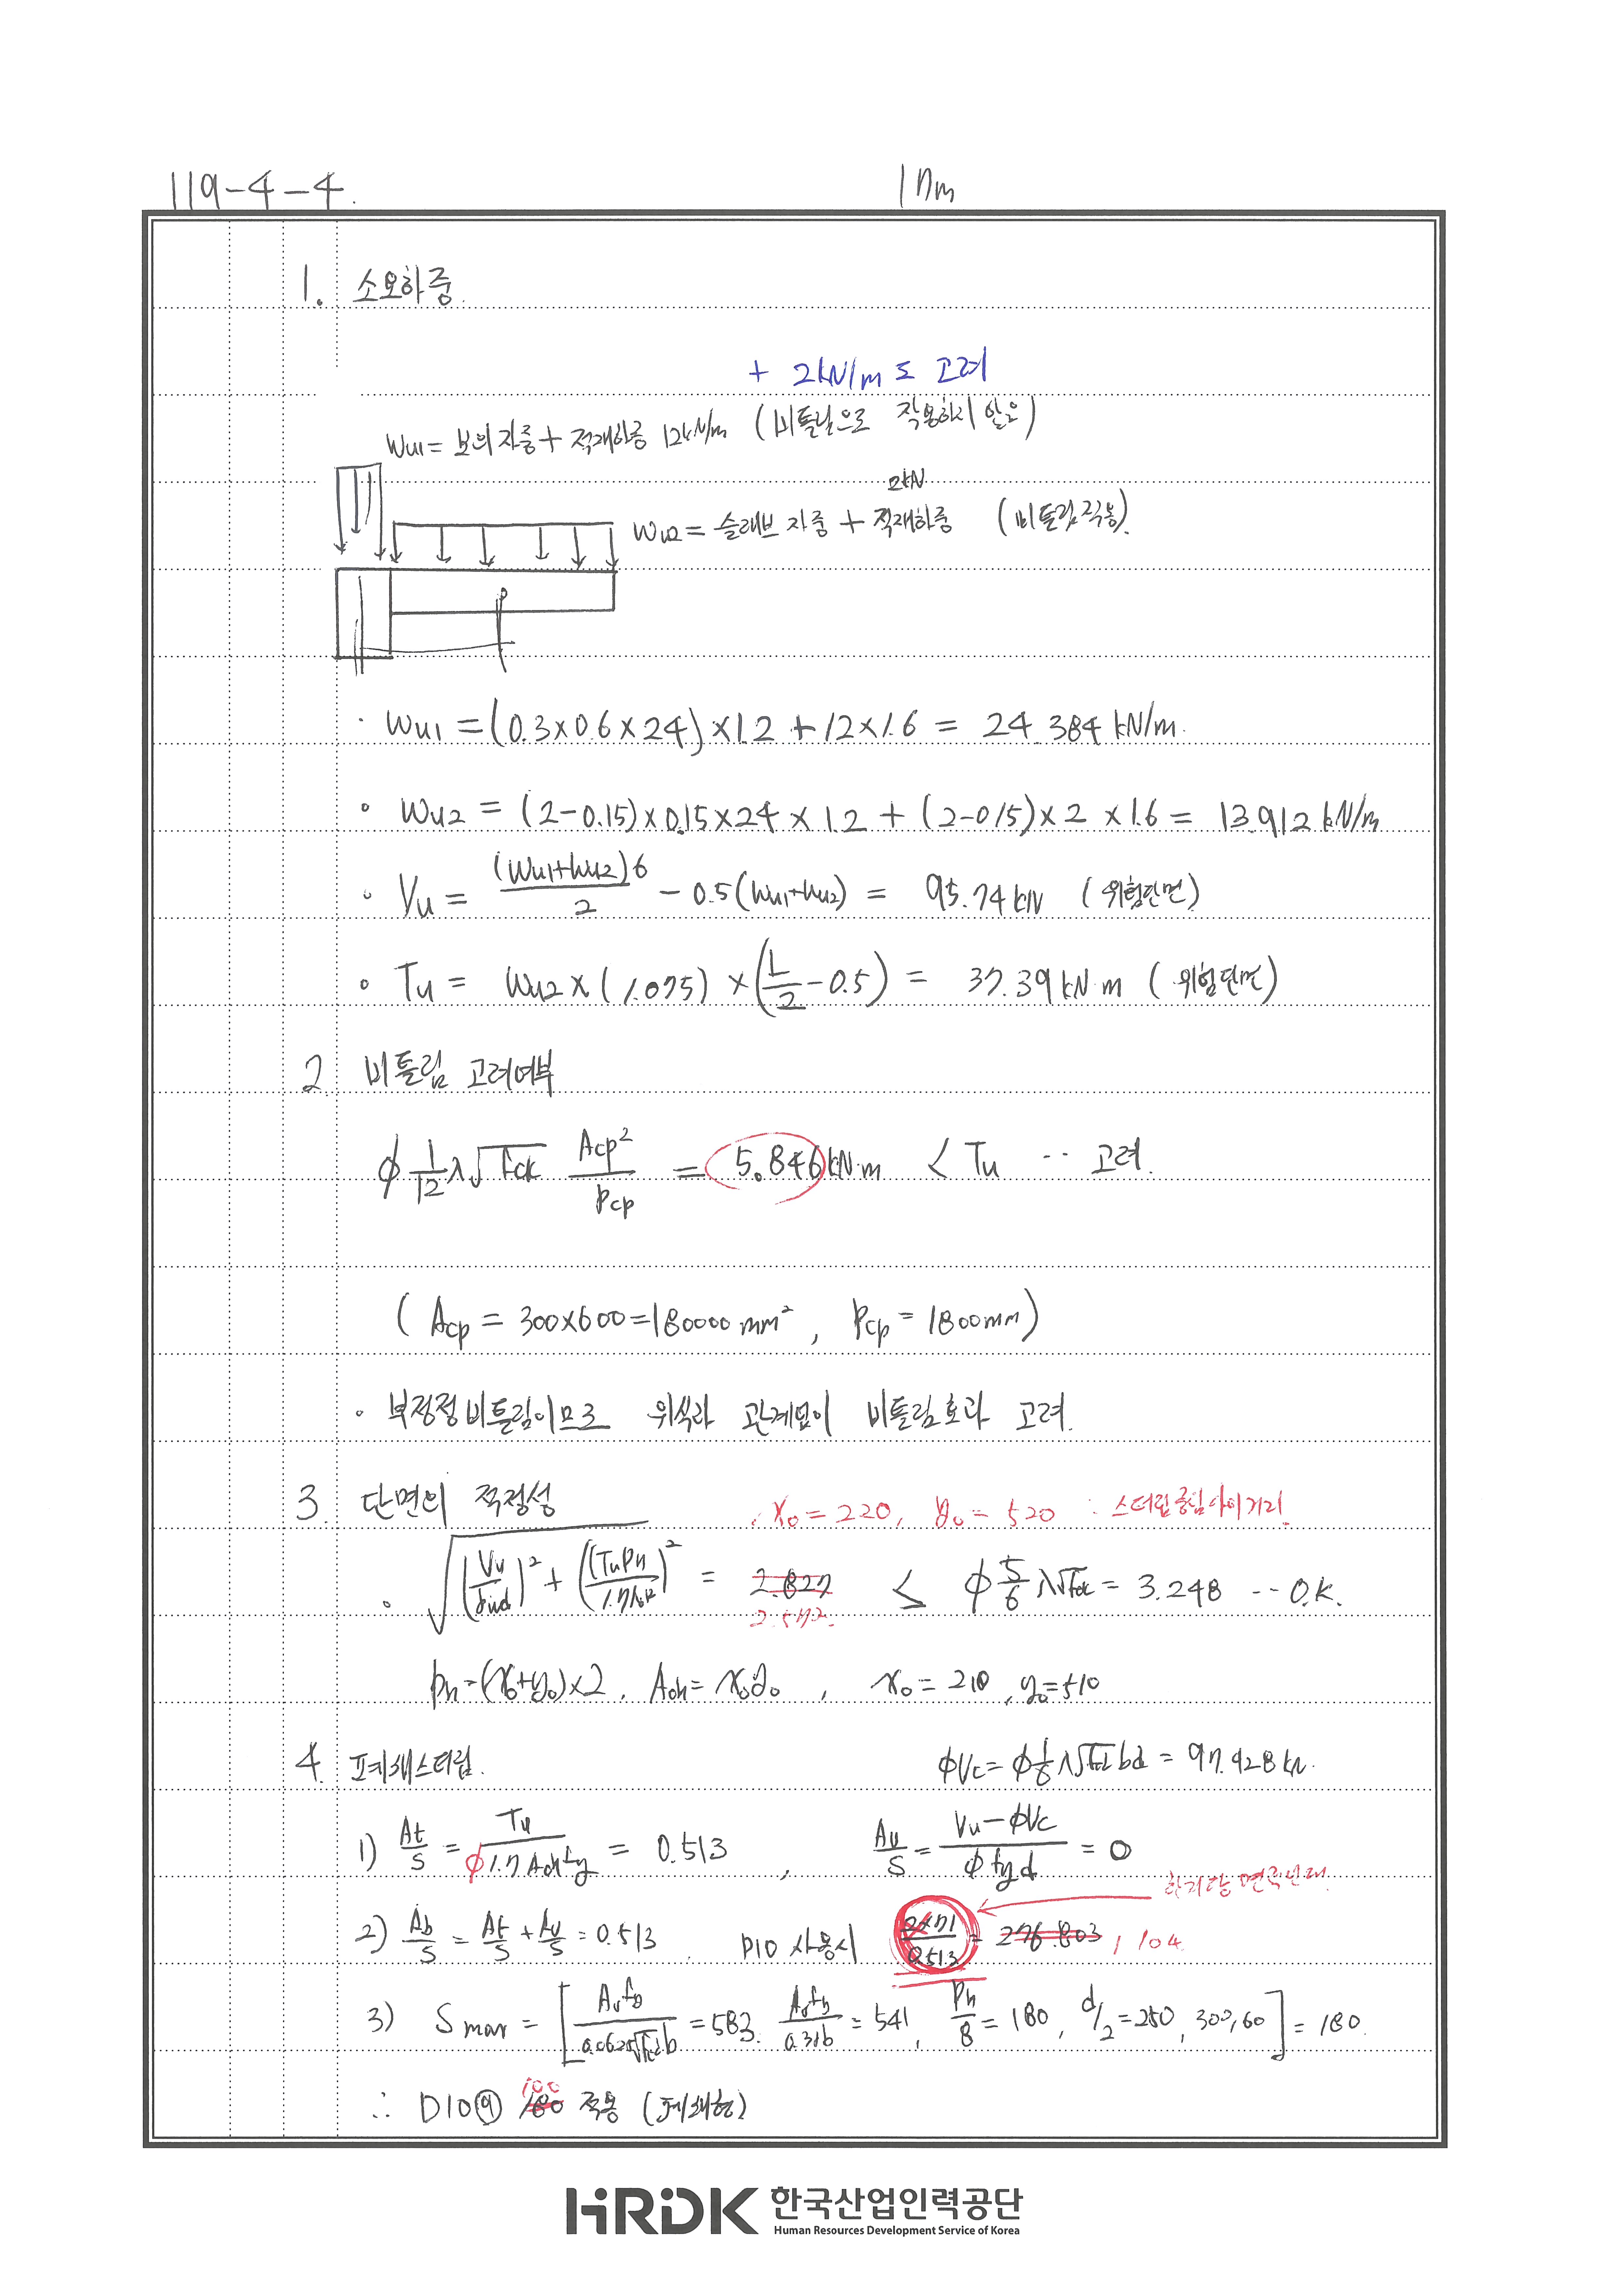 119-4-4.
17m
1. 소요하중.
+ 2kN/m도 고려
Wu1 = 보의 자중 + 적재하중 12kN/m (비틀림으로 작용하지 않음)
2kN
Wu2 = 슬래브 자중 + 적재하중 (비틀림 작용).
· Wu1 = (0.3×0.6×24)×1.2 + 12×1.6 = 24.384 kN/m.
· Wu2 = (2-0.15)×0.15×24×1.2 + (2-0.15)×2×1.6 = 13.912 kN/m
· Vu = (Wu1+Wu2)6/2 - 0.5(Wu1+Wu2) = 95.74 kN (위험단면)
· Tu = Wu2×(1.075)×(L/2-0.5) = 37.39 kN·m (위험단면)
2. 비틀림 고려여부
φ 1/12 λ√fck Acp²/Pcp = 5.846 kN·m < Tu ·· 고려.
(Acp = 300×600 = 180000 mm², Pcp = 1800mm)
· 부정정 비틀림이므로 위식과 관계없이 비틀림효과 고려.
3. 단면의 적정성
∴ x₀ = 220, y₀ = 520 : 스터럽 중심사이거리
· √((Vu/bwd)² + (TuPh/1.7Aoh²)²) = 2.827 ≤ φ 5/6 λ√fck = 3.248 -- O.K.
2.572.
Ph = (x₀+y₀)×2, Aoh = x₀y₀, x₀ = 210, y₀ = 510
4. 폐쇄스터럽. φVc = φ 1/6 λ√fck bd = 97.428 kN.
1) At/s = Tu/φ1.7Aohfy = 0.513, Av/s = (Vu-φVc)/φfyd = 0
2) Ab/s = At/s + Av/s = 0.513. D10 사용시 2×71/0.513 = 276.803, 104
3) Smax = [Avfy/0.0625√fck b = 583, Avfy/0.35b = 541, Ph/8 = 180, d/2 = 250, 300, 60] = 180.
100
∴ D10@180 적용 (폐쇄형)
HRDK 한국산업인력공단
Human Resources Development Service of Korea